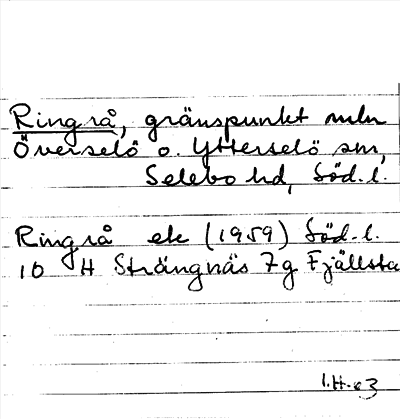 Ringrå, gränspunkt mln
Överselö o. Ytterselö snr,
Selebo hd, Söd. l.
Ringrå ek (1959) Söd. l.
10 H Strängnäs 7g Fjällsta
I.H-63